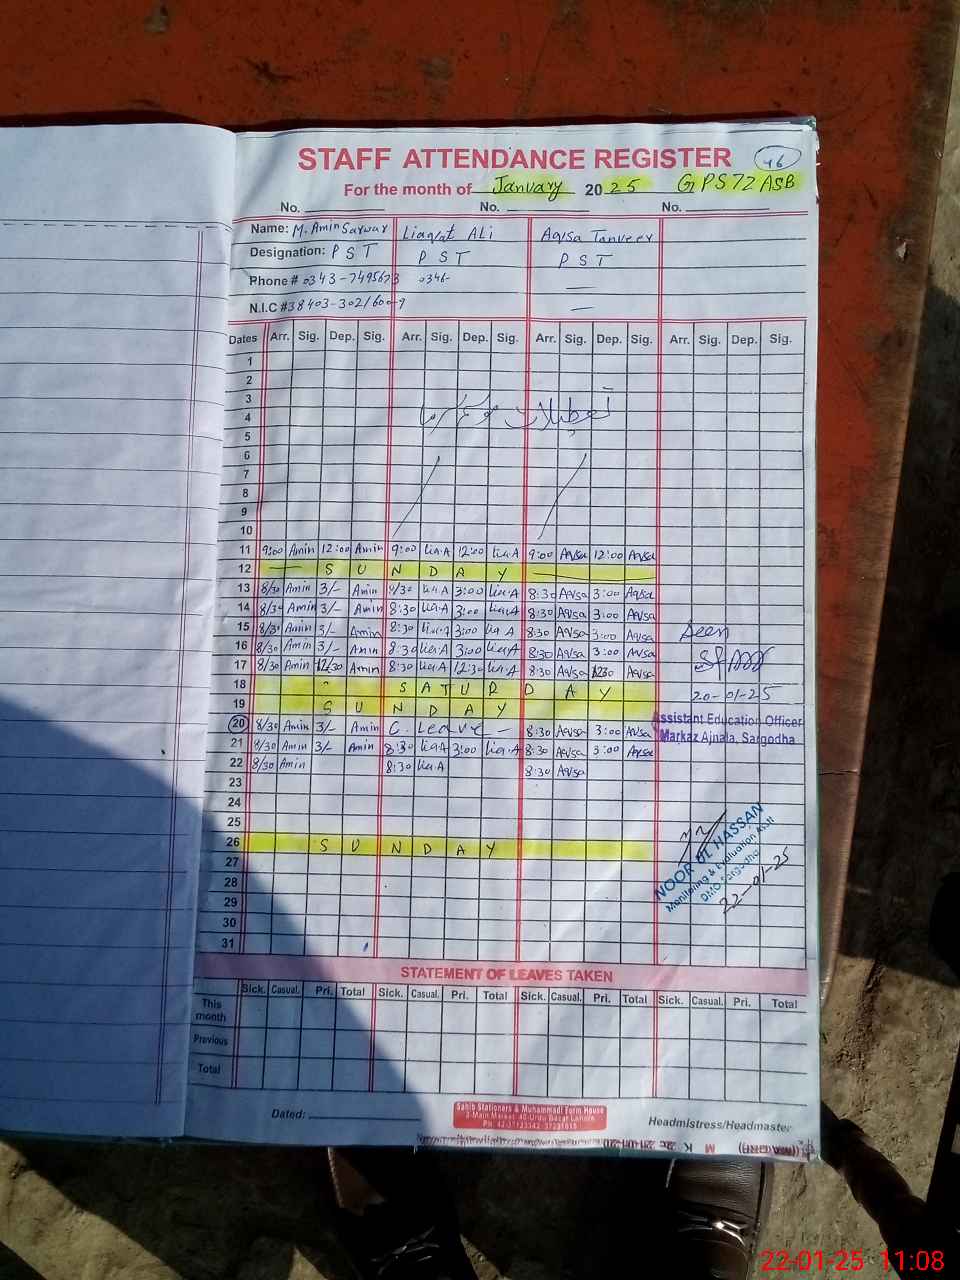 STAFF ATTENDANCE REGISTER 46
For the month of January 2025 GPS 72 ASB
No. No. No.
Name: M. Amin Sarwar Liaqat Ali Aqsa Tanveer
Designation: P S T P S T P S T
Phone # 0343-7495673 0346- —
N.I.C # —
Dates Arr. Sig. Dep. Sig. Arr. Sig. Dep. Sig. Arr. Sig. Dep. Sig. Arr. Sig. Dep. Sig.
1
2
3
4 تعطیلات
5
6
7
8
9
10
11 9:00 Amin 12:00 Amin 9:00 Lia.A 12:00 Lia.A 9:00 Aqsa 12:00 Aqsa
12 — S U N D A Y —
13 8/30 Amin 3/- Amin 8/30 Lia.A 3:00 Lia.A 8:30 Aqsa 3:00 Aqsa
14 8/30 Amin 3/- Amin 8:30 Lia.A 3:00 Lia.A 8:30 Aqsa 3:00 Aqsa
15 8/30 Amin 3/- Amin 8:30 Lia.A 3:00 Lia.A 8:30 Aqsa 3:00 Aqsa
16 8/30 Amin 3/- Amin 8:30 Lia.A 3:00 Lia.A 8:30 Aqsa 3:00 Aqsa
17 8/30 Amin 12/30 Amin 8:30 Lia.A 12:30 Lia.A 8:30 Aqsa 1230 Aqsa
Seen
18 S A T U R D A Y
20-01-25
19 S U N D A Y
Assistant Education Officer
Markaz Ajnala, Sargodha
20 8/30 Amin 3/- Amin C. Leave - 8:30 Aqsa 3:00 Aqsa
21 8/30 Amin 3/- Amin 8:30 Lia.A 3:00 Lia.A 8:30 Aqsa 3:00 Aqsa
22 8/30 Amin 8:30 Lia.A 8:30 Aqsa
23
24
25
26 S U N D A Y
27
28
29
30
31
NOOR UL HASSAN
Monitoring & Evaluation Asstt
DMO Sargodha
22-01-25
STATEMENT OF LEAVES TAKEN
Sick. Casual. Pri. Total Sick. Casual. Pri. Total Sick. Casual. Pri. Total Sick. Casual. Pri. Total
This month
Previous
Total
Dated:
Sahib Stationers & Muhammadi Form House
2-Main Market, 40-Urdu Bazar Lahore
Headmistress/Headmaster
22-01-25 11:08